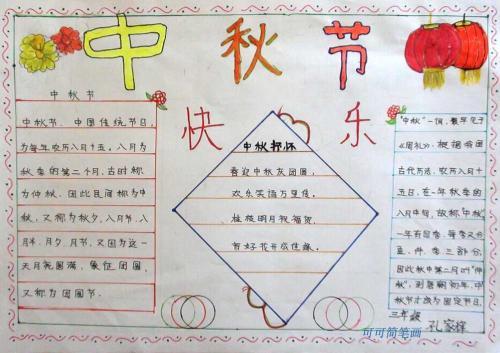 中秋节
快乐
中秋节
中秋节、中国传统节日,
为每年农历八月十五,八月为
秋季的第二个月,古时称
为仲秋,因此民间称为中
秋,又称为秋夕,八月节,八
月半,月夕,月节,又因为这一
天月亮圆满,象征团圆,
又称为团圆节。
中秋抒怀
喜迎中秋友团圆,
欢乐笑语万里传。
桂枝明月祝福贺,
智好花开成佳缘。
"中秋"一词,最早见于
《周礼》,根据我国
古代历法,农历八月十
五日,在一年秋季的
八月中旬,故称"中秋",
一年有四季,每季又分
孟、仲、季三部分,
因此秋中第二月叫"仲
秋",到唐朝初年,中
秋节才成为固定节日。
三年级
孔家祥
可可简笔画